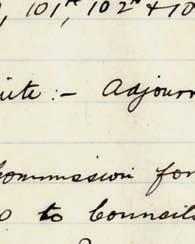 101st, 102nd & 10
ute:- Adjourn
Commission for
to Councils